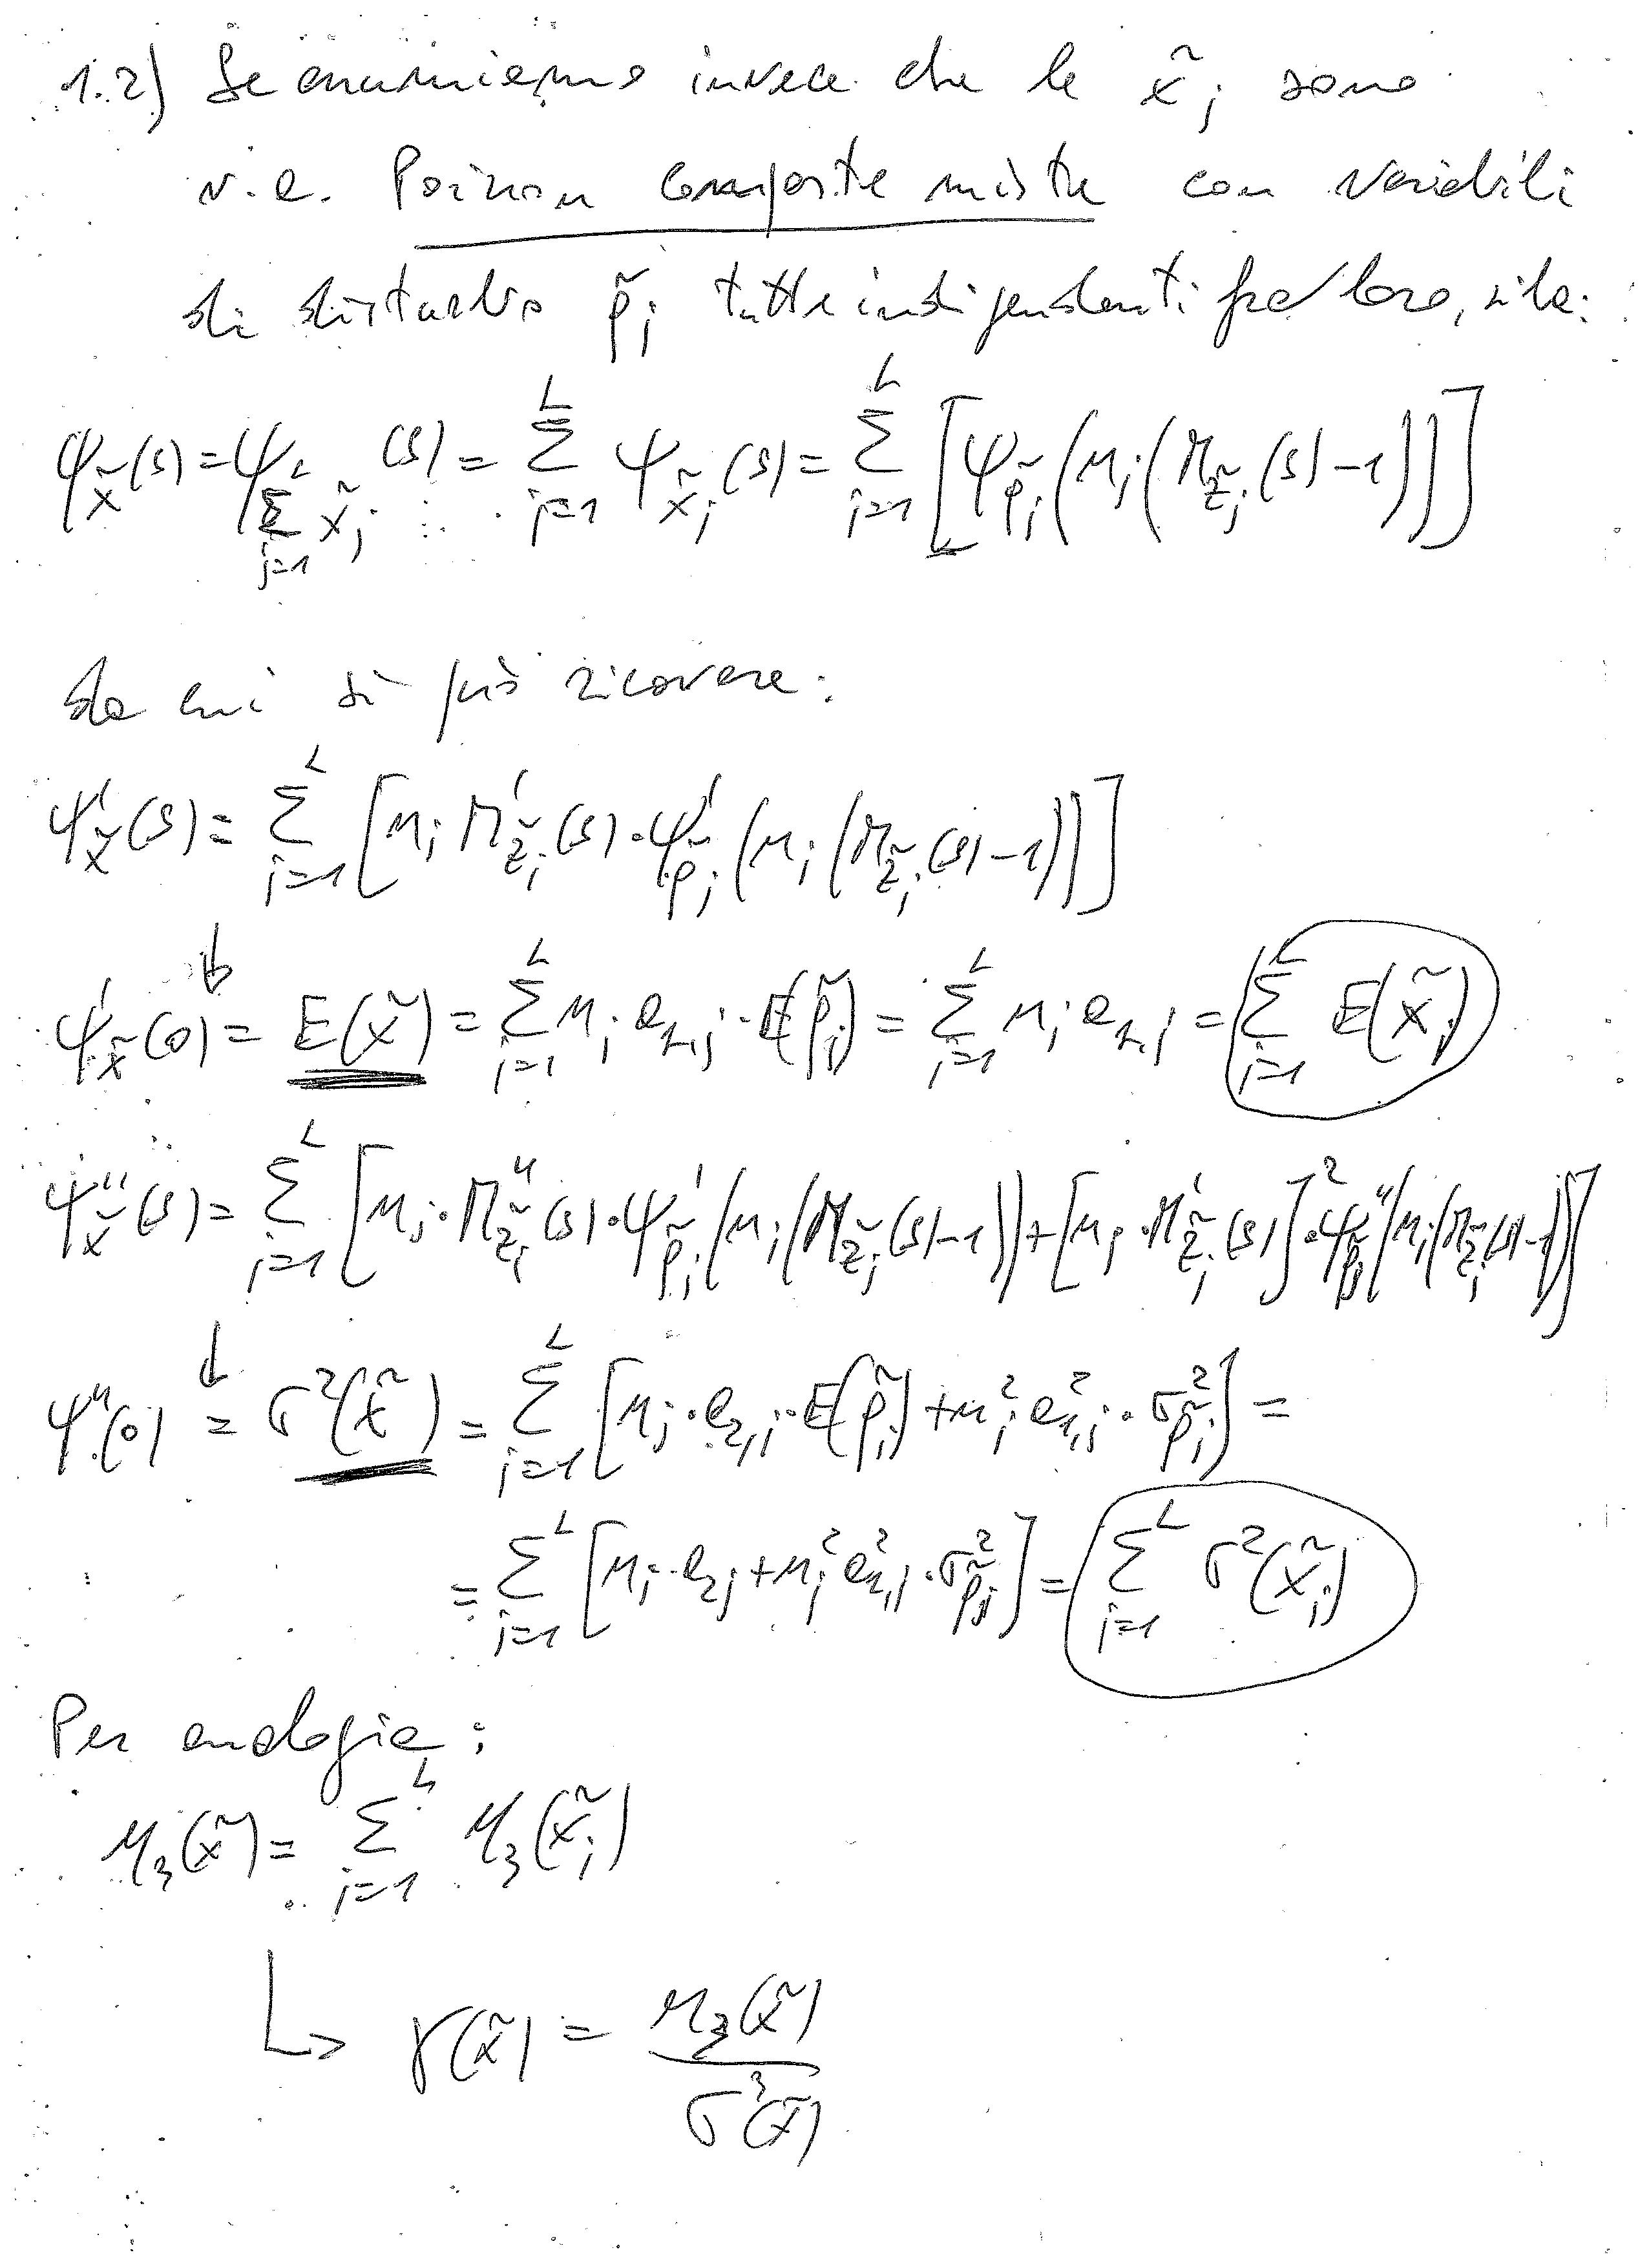 1.2) Se assumiamo invece che le x̃_j sono
v.a. Poisson composte miste con variabili
di disturbo p̃_j tutte indipendenti fra loro, si ha:
Ψ_x̃(s) = Ψ_{Σ_{j=1}^L x̃_j}(s) = Σ_{j=1}^L Ψ_{x̃_j}(s) = Σ_{j=1}^L [Ψ_{p̃_j}(n_j(M_{z̃_j}(s)-1))]
da cui si può ricavare:
Ψ'_x̃(s) = Σ_{j=1}^L [n_j M'_{z̃_j}(s)·Ψ'_{p̃_j}(n_j(M_{z̃_j}(s)-1))]
Ψ'_x̃(0) = E(x̃) = Σ_{j=1}^L n_j a_{1,j}·E(p̃_j) = Σ_{j=1}^L n_j a_{1,j} = Σ_{j=1}^L E(x̃_j)
Ψ''_x̃(s) = Σ_{j=1}^L [n_j·M''_{z̃_j}(s)·Ψ'_{p̃_j}(n_j(M_{z̃_j}(s)-1)) + [n_j·M'_{z̃_j}(s)]²·Ψ''_{p̃_j}(n_j(M_{z̃_j}(s)-1))]
Ψ''(0) = σ²(x̃) = Σ_{j=1}^L [n_j·a_{2,j}·E(p̃_j) + n_j² a²_{1,j}·σ²_{p̃_j}] =
= Σ_{j=1}^L [n_j·a_{2,j} + n_j² a²_{1,j}·σ²_{p̃_j}] = Σ_{j=1}^L σ²(x̃_j)
Per analogia:
μ_3(x̃) = Σ_{j=1}^L μ_3(x̃_j)
↳ γ(x̃) = μ_3(x̃) / σ³(x̃)